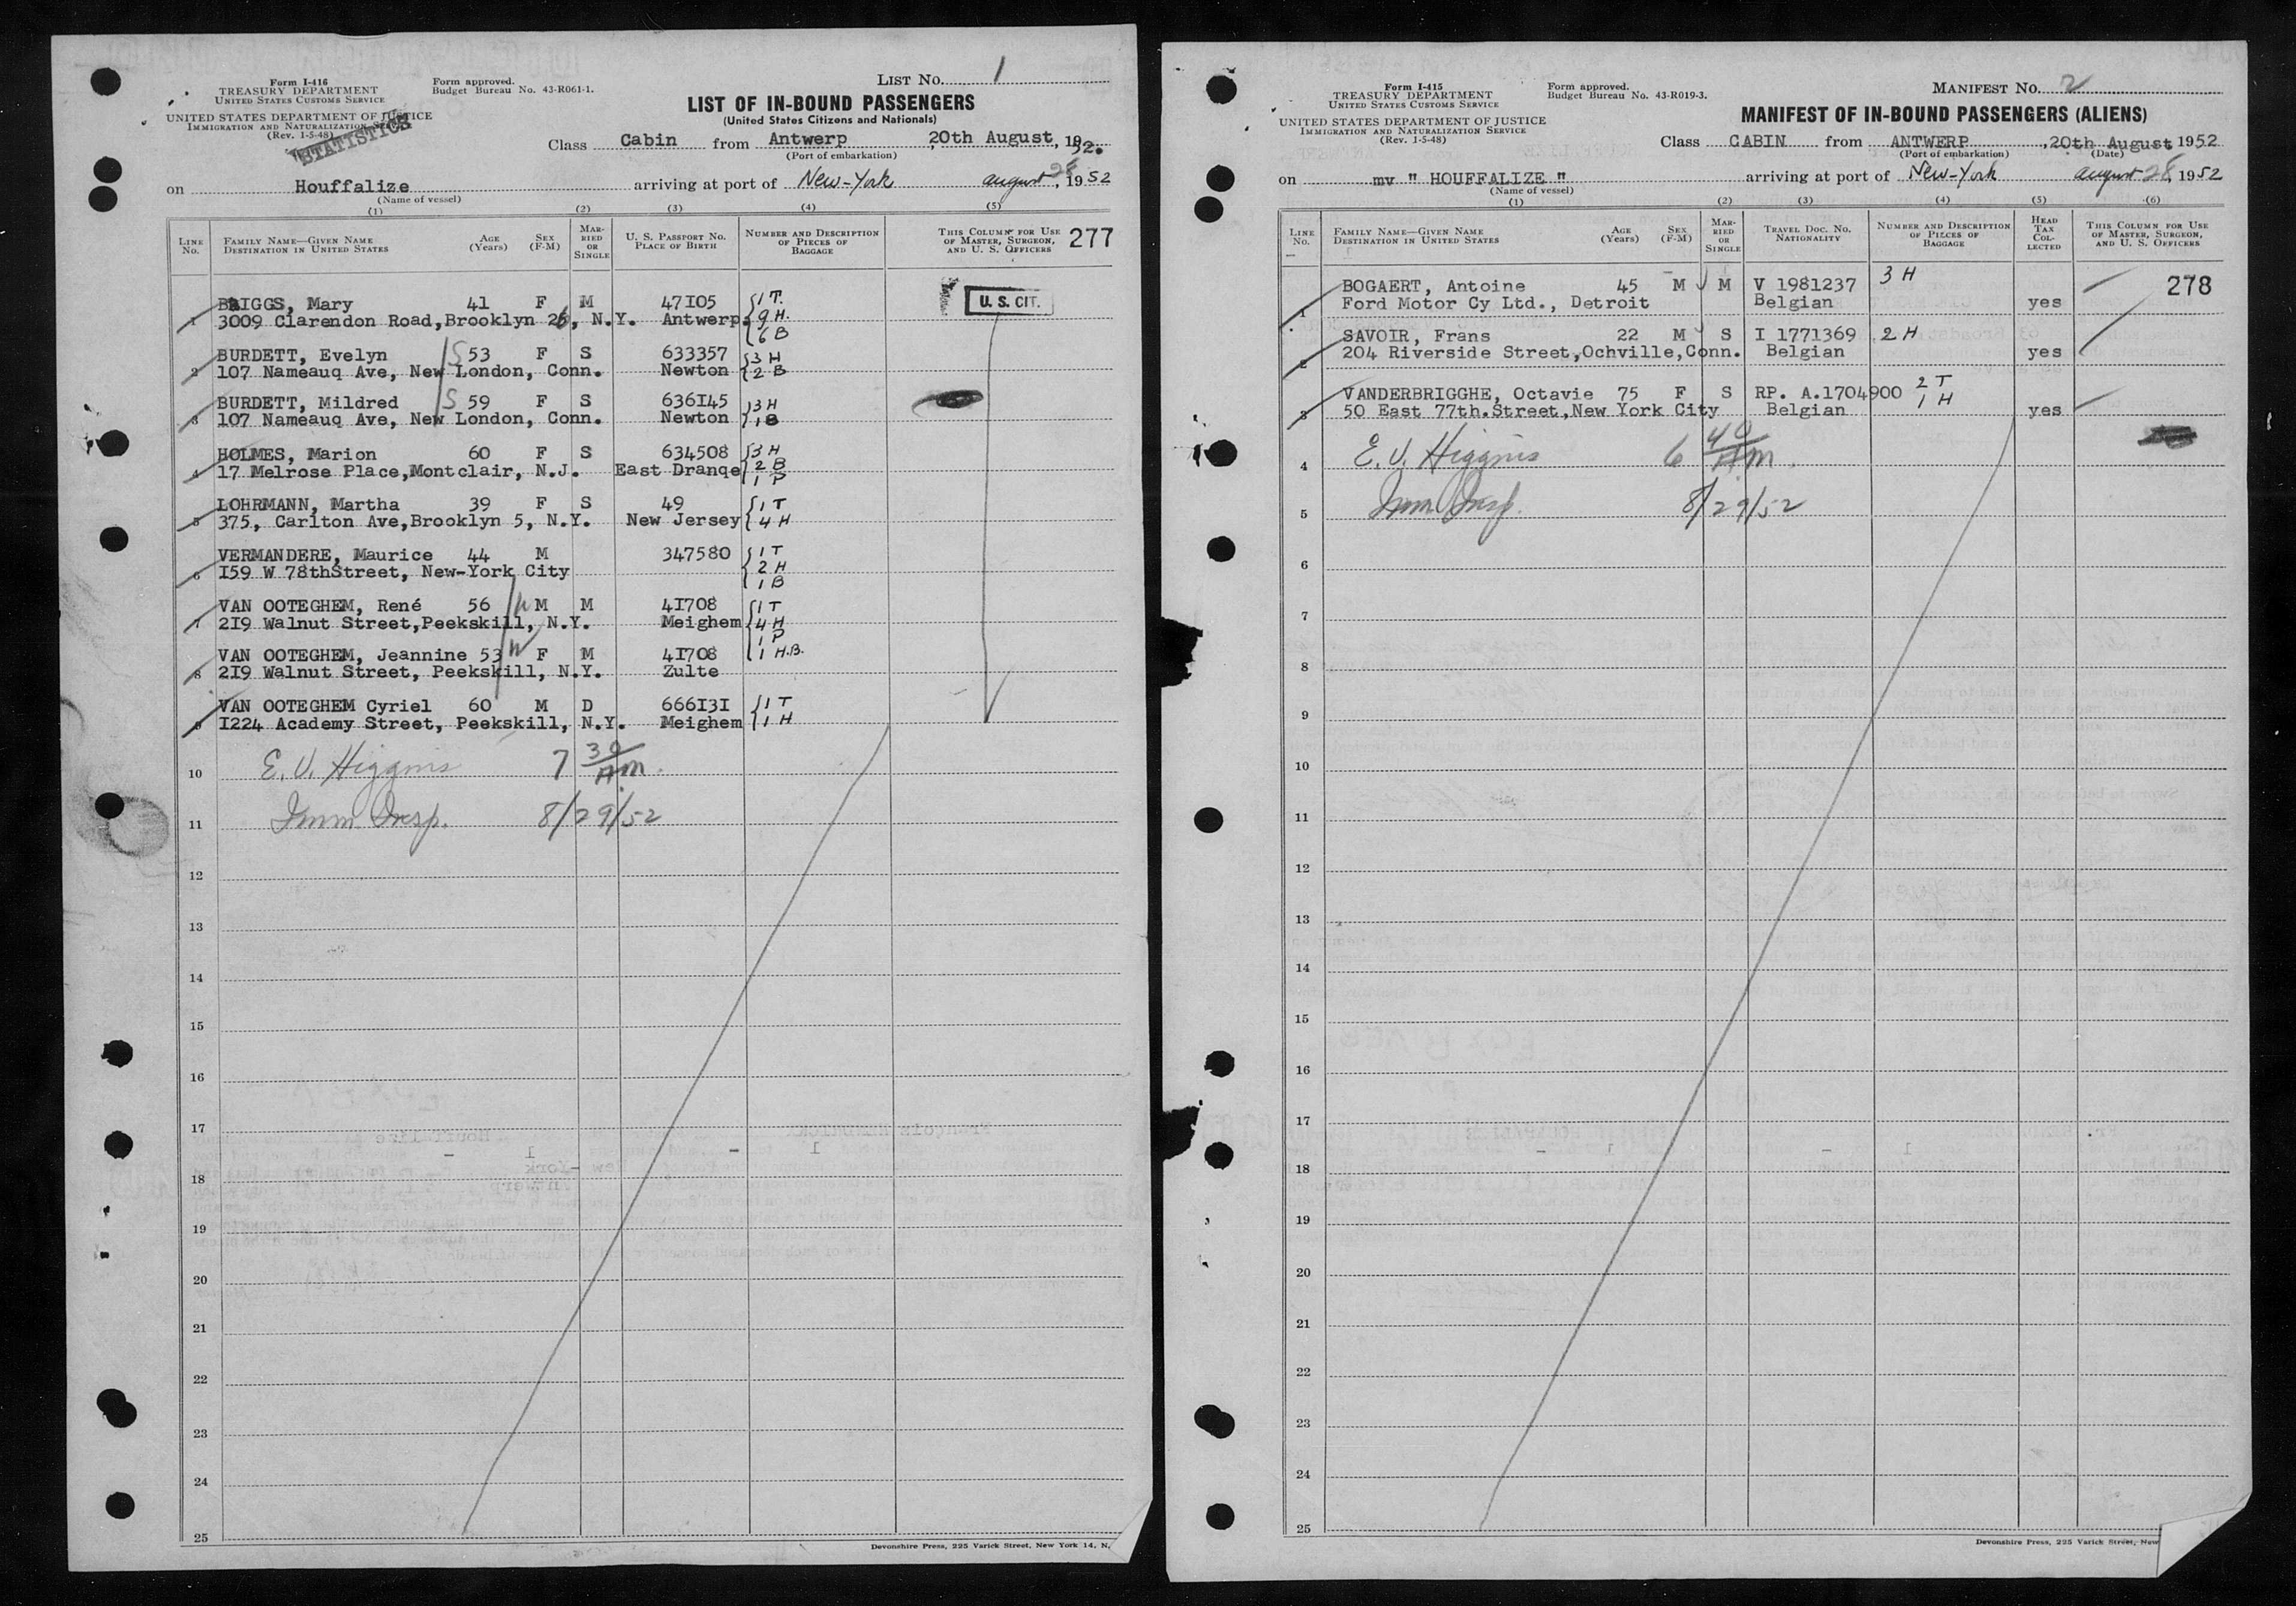 Form I-416
TREASURY DEPARTMENT
UNITED STATES CUSTOMS SERVICE
UNITED STATES DEPARTMENT OF JUSTICE
IMMIGRATION AND NATURALIZATION SERVICE
(Rev. 1-5-48)
STATISTICS
Form approved.
Budget Bureau No. 43-R061-1.
LIST NO. 1
LIST OF IN-BOUND PASSENGERS
(United States Citizens and Nationals)
Class Cabin from Antwerp, 20th August, 1952.
(Port of embarkation)
on Houffalize arriving at port of New-York august 28, 1952
(Name of vessel)
(1) (2) (3) (4) (5)
LINE NO. FAMILY NAME—GIVEN NAME DESTINATION IN UNITED STATES AGE (Years) SEX (F-M) MARRIED OR SINGLE U. S. PASSPORT NO. PLACE OF BIRTH NUMBER AND DESCRIPTION OF PIECES OF BAGGAGE THIS COLUMN FOR USE OF MASTER, SURGEON, AND U. S. OFFICERS 277
BRIGGS, Mary 41 F M 47I05 1 T. 9 H. 6 B
1 3009 Clarendon Road,Brooklyn 26, N.Y. Antwerp.
U. S. CIT.
BURDETT, Evelyn S 53 F S 633357 3 H
2 107 Nameauq Ave, New London, Conn. Newton 2 B
BURDETT, Mildred S 59 F S 636I45 3 H
3 107 Nameauq Ave, New London, Conn. Newton 1 B
HOLMES, Marion 60 F S 634508 3 H 2 B 1 P
4 17 Melrose Place,Montclair, N.J. East Dranqe
LOHRMANN, Martha 39 F S 49 1 T
5 375, Carlton Ave,Brooklyn 5, N.Y. New Jersey 4 H
VERMANDERE, Maurice 44 M 347580 1 T 2 H 1 B
6 I59 W 78thStreet, New-York City
VAN OOTEGHEM, René 56 M M 4I708 1 T 4 H 1 P
7 2I9 Walnut Street,Peekskill, N.Y. Meighem
VAN OOTEGHEM, Jeannine 53 F M 4I708 1 H.B.
8 2I9 Walnut Street, Peekskill, N.Y. Zulte
VAN OOTEGHEM Cyriel 60 M D 666I3I 1 T
9 I224 Academy Street, Peekskill, N.Y. Meighem 1 H
10 E. V. Higgins 7 30 AM.
11 Imm. Insp. 8/29/52
12
13
14
15
16
17
18
19
20
21
22
23
24
25
Devonshire Press, 225 Varick Street, New York 14, N.
Form I-415
TREASURY DEPARTMENT
UNITED STATES CUSTOMS SERVICE
UNITED STATES DEPARTMENT OF JUSTICE
IMMIGRATION AND NATURALIZATION SERVICE
(Rev. 1-5-48)
Form approved.
Budget Bureau No. 43-R019-3.
MANIFEST NO. 2
MANIFEST OF IN-BOUND PASSENGERS (ALIENS)
Class CABIN from ANTWERP, 20th August 1952
(Port of embarkation) (Date)
on mv " HOUFFALIZE " arriving at port of New-York august 28, 1952
(Name of vessel)
(1) (2) (3) (4) (5) (6)
LINE NO. FAMILY NAME—GIVEN NAME DESTINATION IN UNITED STATES AGE (Years) SEX (F-M) MARRIED OR SINGLE TRAVEL DOC. NO. NATIONALITY NUMBER AND DESCRIPTION OF PIECES OF BAGGAGE HEAD TAX COLLECTED THIS COLUMN FOR USE OF MASTER, SURGEON, AND U. S. OFFICERS
BOGAERT, Antoine 45 M M V 1981237 3 H 278
1 Ford Motor Cy Ltd., Detroit Belgian yes
SAVOIR, Frans 22 M S I 1771369 2 H
2 204 Riverside Street,Ochville,Conn. Belgian yes
VANDERBRIGGHE, Octavie 75 F S RP. A.1704900 2 T
3 50 East 77th.Street,New York City Belgian 1 H yes
4 E. V. Higgins 6 40 AM.
5 Imm Insp. 8/29/52
6
7
8
9
10
11
12
13
14
15
16
17
18
19
20
21
22
23
24
25
Devonshire Press, 225 Varick Street, New